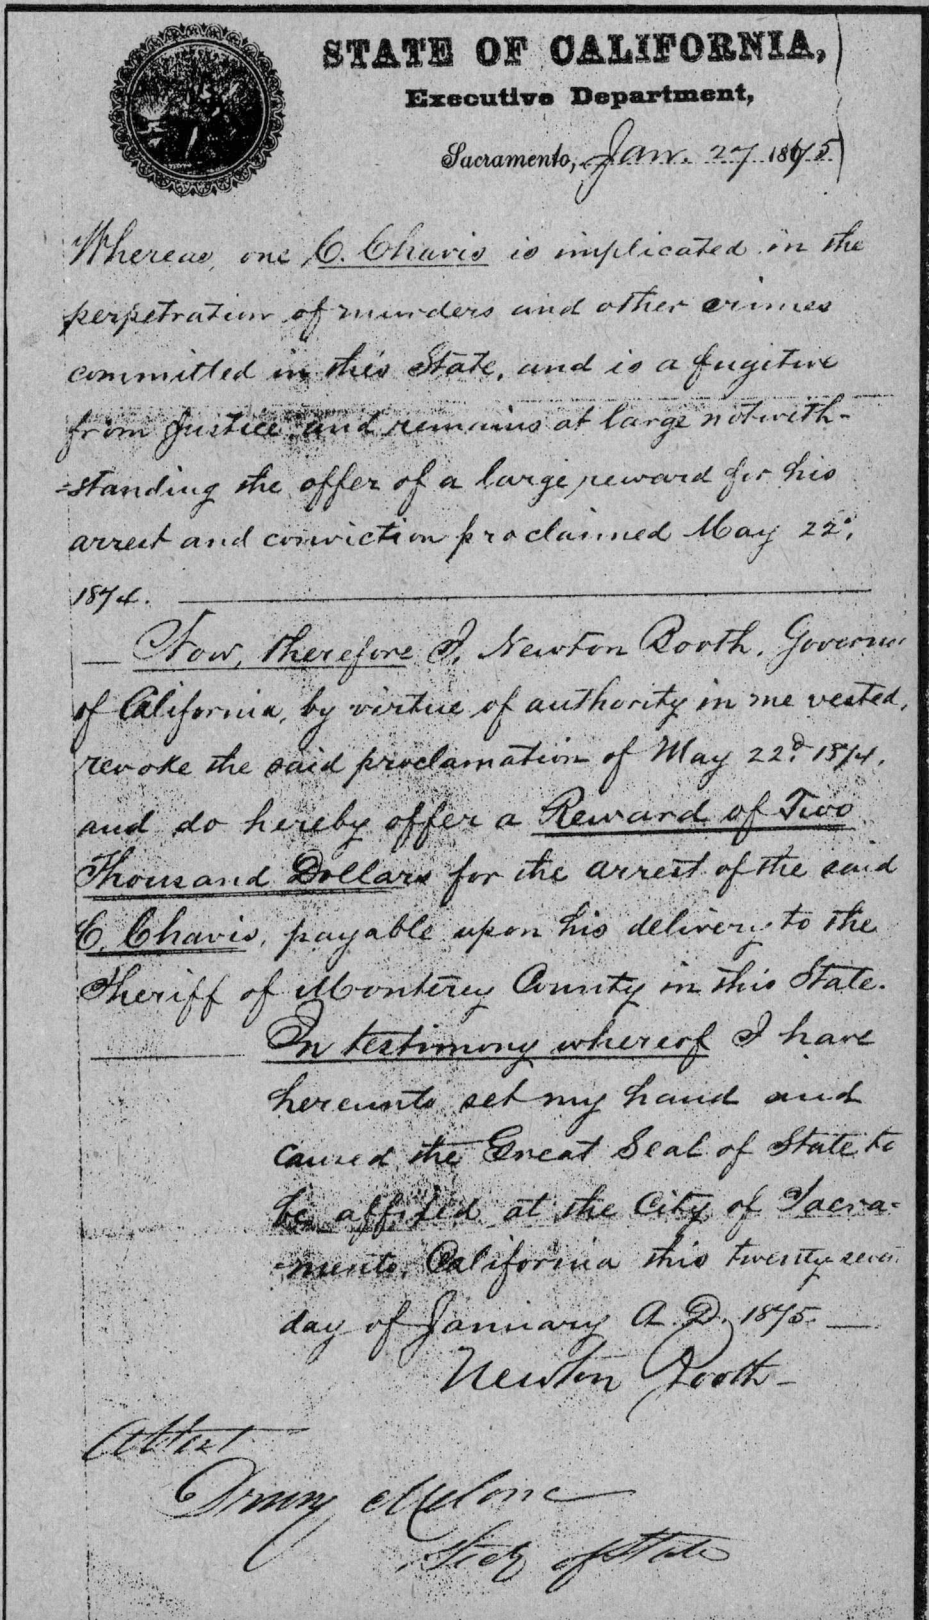 STATE OF CALIFORNIA,
Executive Department,
Sacramento, Jan. 27 1875
Whereas, one C. Chavis is implicated in the
perpetration of murders and other crimes
committed in this State, and is a fugitive
from Justice and remains at large notwith-
=standing the offer of a large reward for his
arrest and conviction proclaimed May 22d,
1874.
— Now, therefore I, Newton Booth, Governor
of California, by virtue of authority in me vested,
revoke the said proclamation of May 22d. 1874,
and do hereby offer a Reward of Two
Thousand Dollars for the arrest of the said
C. Chavis, payable upon his delivery to the
Sheriff of Monterey County in this State.
In testimony whereof I have
hereunto set my hand and
caused the Great Seal of State to
be affixed at the City of Sacra-
-mento, California this twenty-seven
day of January A.D. 1875. —
Newton Booth
Attest
Drury Melone
Secy of State